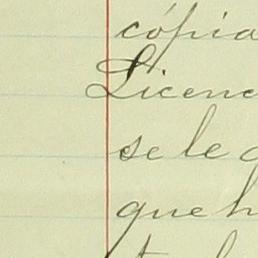 cópia
Licenc
se le
que h